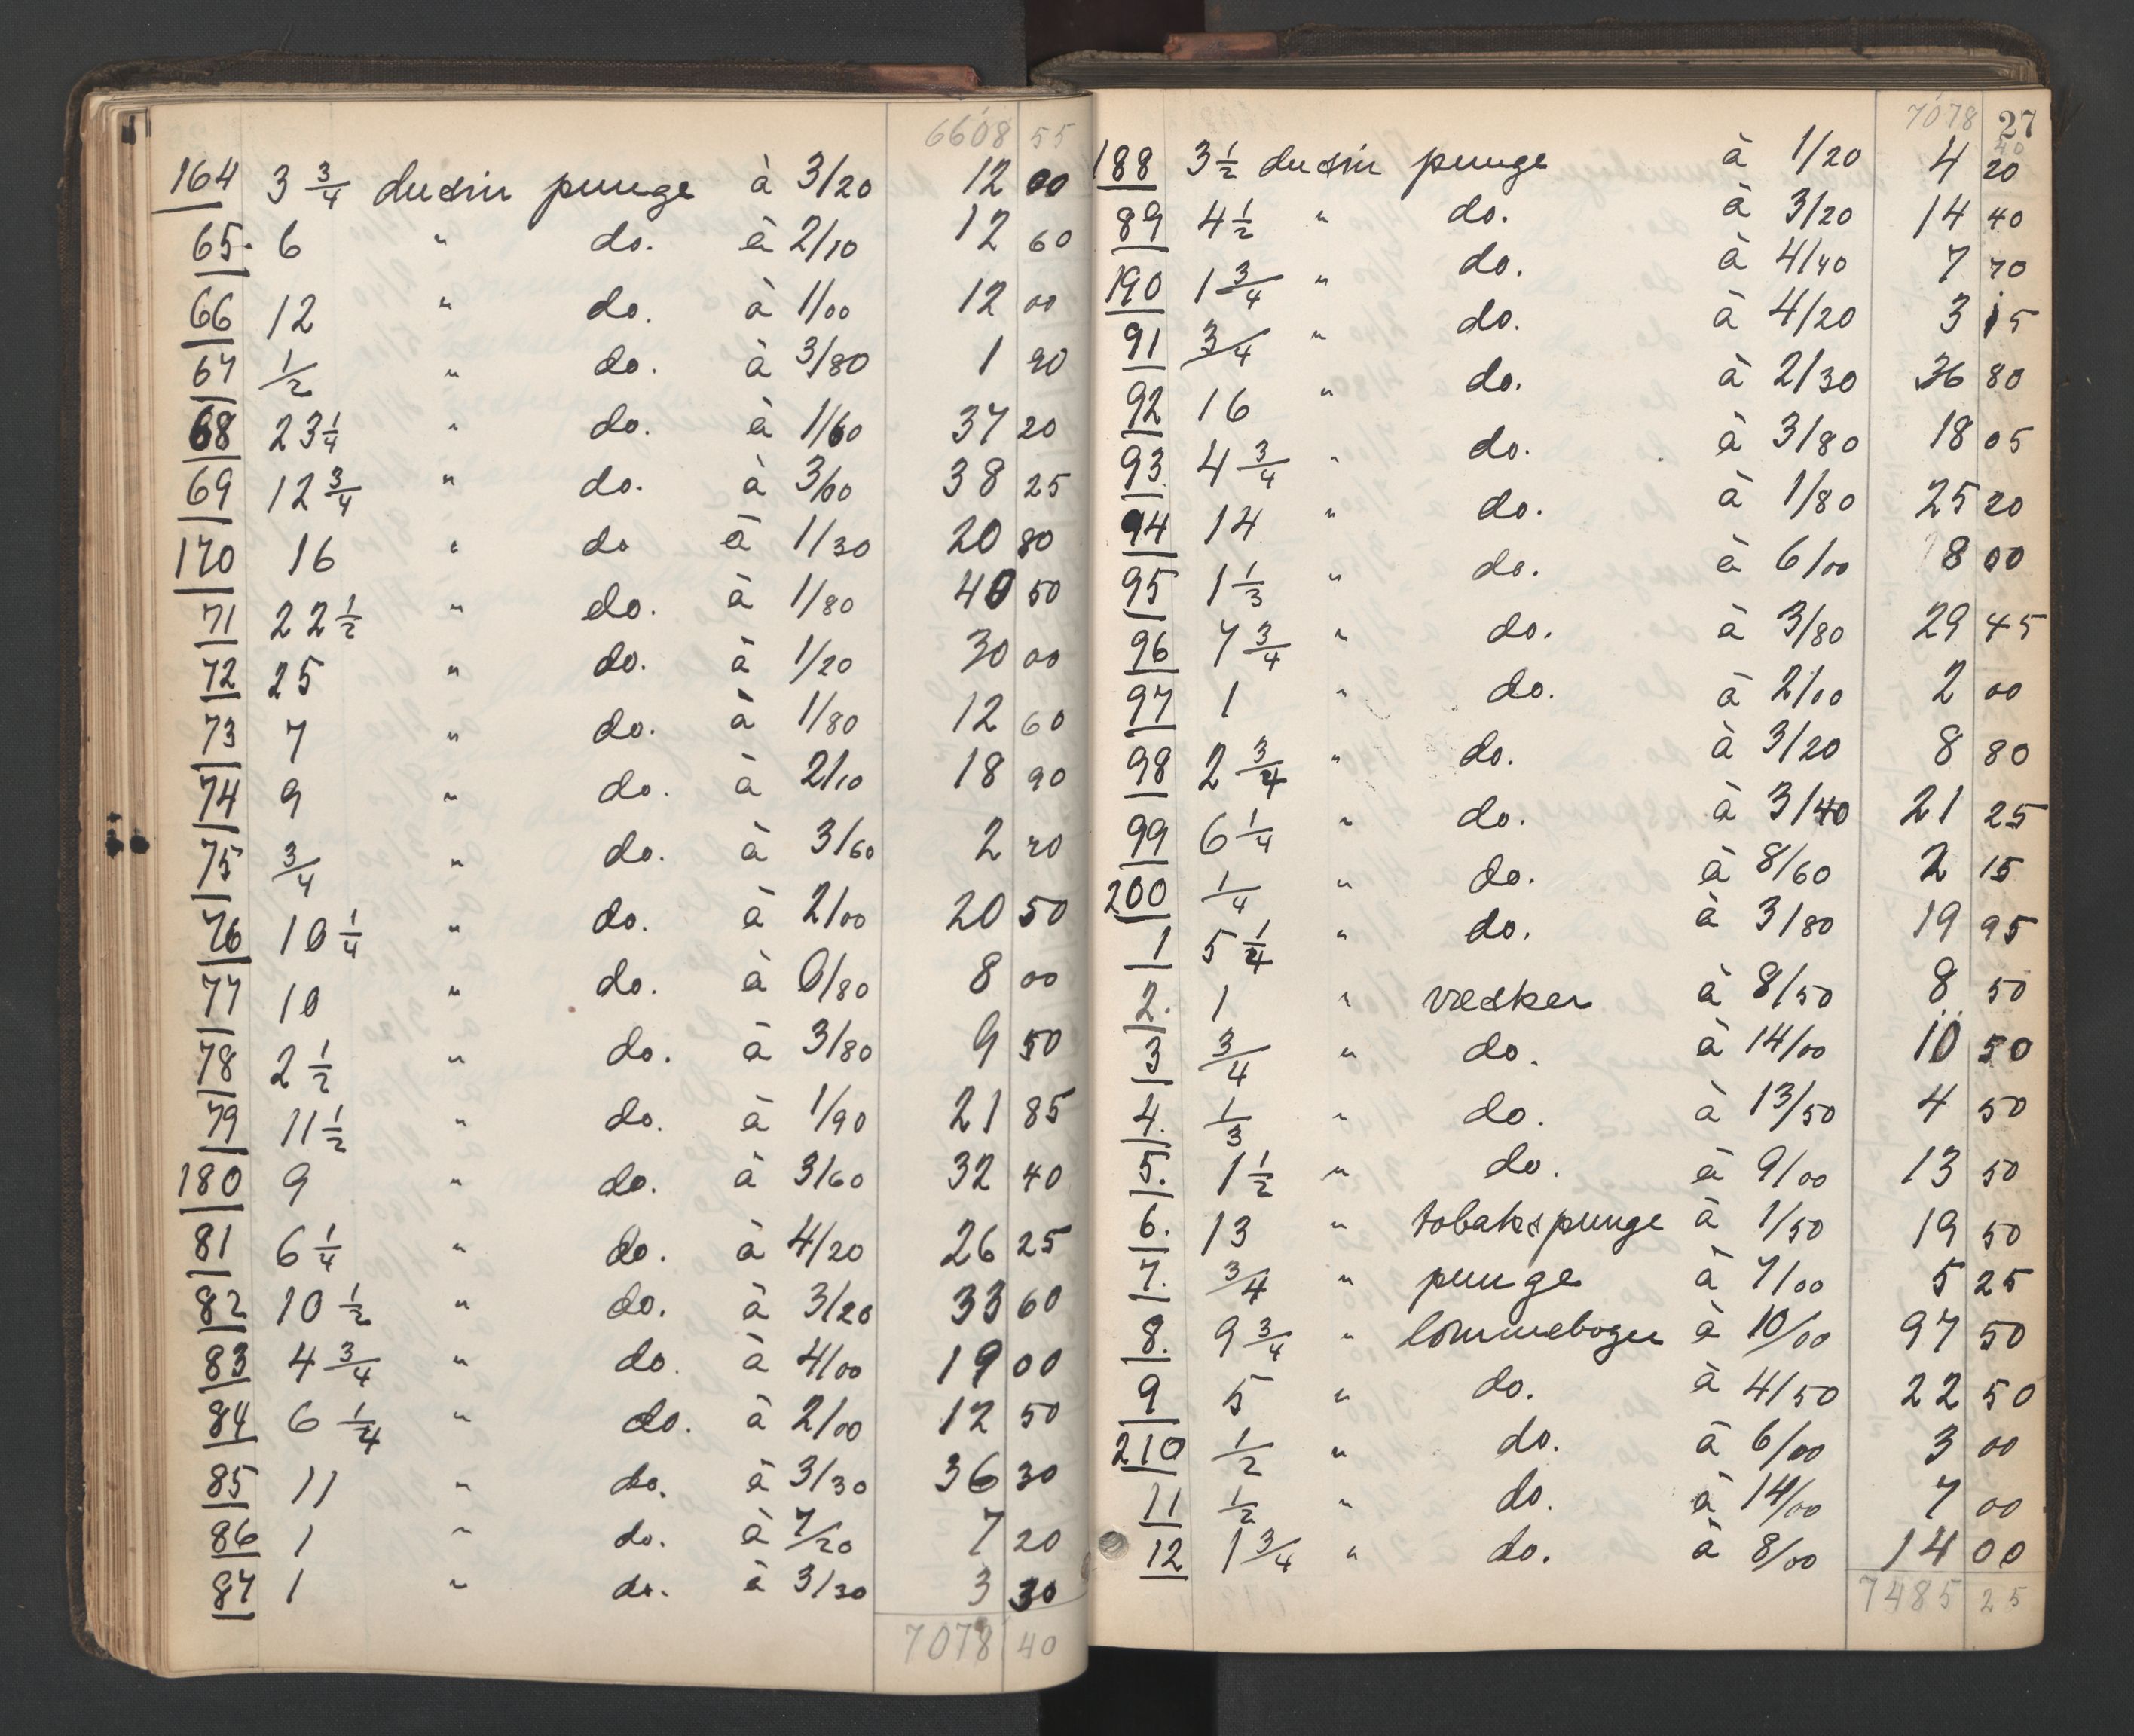 6608 55
164 3 3/4 dusin punge à 3/20 12 00
65. 6 " do. à 2/10 12 60
66 12 " do. à 1/00 12 00
67 1/2 " do. à 3/80 1 90
68 23 1/4 " do. à 1/60 37 20
69 12 3/4 " do. à 3/00 38 25
170 16 " do à 1/30 20 80
71 22 1/2 " do. à 1/80 40 50
72 25 " do. à 1/20 30 00
73 7 " do. à 1/80 12 60
74 9 " do. à 2/10 18 90
75 3/4 " do. à 3/60 2 70
76 10 1/4 " do. à 2/00 20 50
77 10 " do. à 0/80 8 00
78 2 1/2 " do. à 3/80 9 50
79 11 1/2 " do. à 1/90 21 85
180 9 " do. à 3/60 32 40
81 6 1/4 " do. à 4/20 26 25
82 10 1/2 " do. à 3/20 33 60
83 4 3/4 " do. à 4/00 19 00
84 6 1/4 " do. à 2/00 12 50
85 11 " do. à 3/30 36 30
86 1 " do. à 7/20 7 20
87 1 " do. à 3/30 3 30
7078 40
7078 40
27
188 3 1/2 dusin punge à 1/20 4 20
89 4 1/2 " do. à 3/20 14 40
190 1 3/4 " do. à 4/40 7 70
91 3/4 " do. à 4/20 3 15
92 16 " do. à 2/30 36 80
93. 4 3/4 " do. à 3/80 18 05
94 14 " do. à 1/80 25 20
95 1 1/3 " do. à 6/00 8 00
96 7 3/4 " do. à 3/80 29 45
97 1 " do. à 2/00 2 00
98 2 3/4 " do. à 3/20 8 80
99 6 1/4 " do. à 3/40 21 25
200 1/4 " do. à 8/60 2 15
1 5 1/4 " do. à 3/80 19 95
2. 1 " vædsker à 8/50 8 50
3 3/4 " do. à 14/00 10 50
4. 1/3 " do. à 13/50 4 50
5. 1 1/2 " do. à 9/00 13 50
6. 13 " tobakspunge à 1/50 19 50
7. 3/4 " punge à 7/00 5 25
8. 9 3/4 " lommebøger à 10/00 97 50
9 5 " do. à 4/50 22 50
210 1/2 " do. à 6/00 3 00
11 1/2 " do. à 14/00 7 00
12 1 3/4 " do. à 8/00 14 00
7485 25